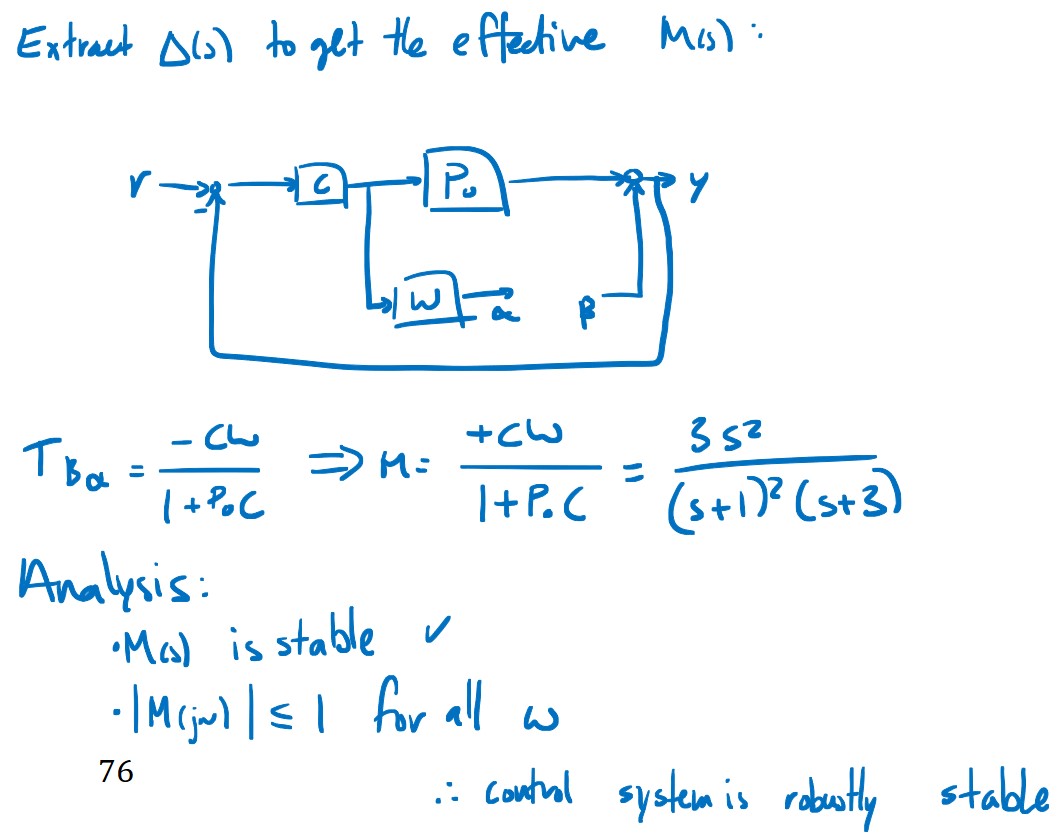 Extract Δ(s) to get the effective M(s):
r
-
C
P₀
y
W
α
β
T_βα = -CW / 1+P₀C ⇒ M = +CW / 1+P₀C = 3s² / (s+1)²(s+3)
Analysis:
·M(s) is stable ✓
·|M(jω)| ≤ 1 for all ω
76
∴ control system is robustly stable